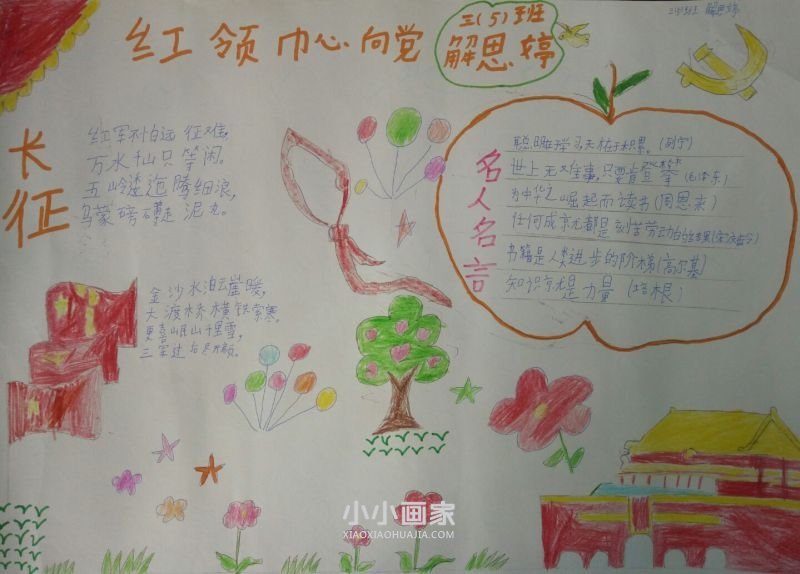 红领巾心向党
三(5)班
解思婷
三(5)班 解思婷
长征
红军不怕远征难,
万水千山只等闲。
五岭逶迤腾细浪,
乌蒙磅礴走泥丸。
金沙水泊云崖暖,
大渡桥横铁索寒,
更喜岷山千里雪,
三军过后尽开颜。
名人名言
聪明在于学习,天才在于积累。(列宁)
世上无难事,只要肯登攀(毛泽东)
为中华之崛起而读书(周恩来)
任何成就都是刻苦劳动的结果(宋庆龄)
书籍是人类进步的阶梯(高尔基)
知识就是力量(培根)
小小画家
XIAOXIAOHUAJIA.COM